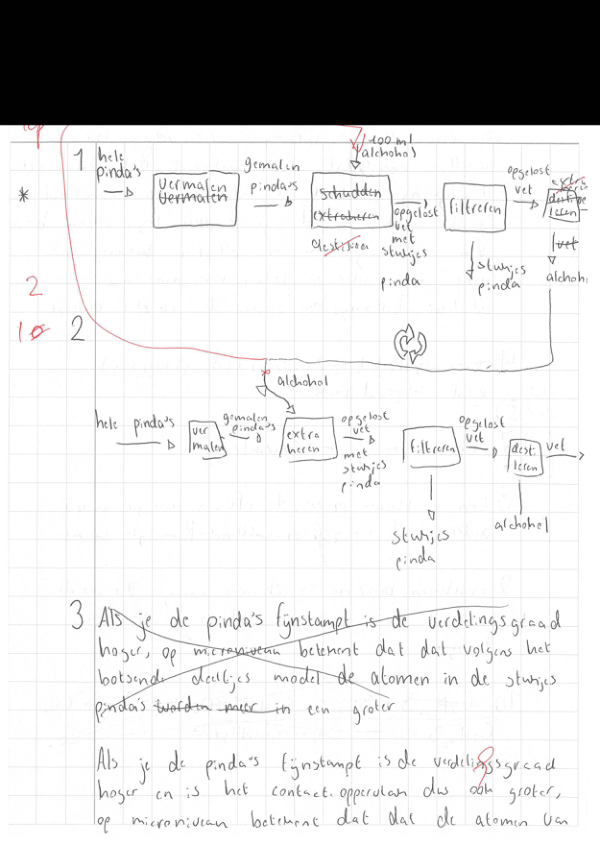 1 hele pinda's
vermalen
vermalen
gemalen pinda's
100 ml alchohol
schudden
extraheren
destilleren
opgelost vet met stukjes pinda
filtreren
stukjes pinda
opgelost vet
vet
alchoh
*
2
10
2
alchohol
hele pinda's
vermalen
gemalen pinda's
extraheren
opgelost vet met stukjes pinda
filtreren
stukjes pinda
opgelost vet
destilleren
vet
alchohol
3 Als je de pinda's fijnstampt is de verdelingsgraad
hoger, op microniveau betekent dat dat volgens het
botsende deeltjes model de atomen in de stukjes
pinda's worden meer in een groter
Als je de pinda's fijnstampt is de verdelingsgraad
hoger en is het contact.oppervlak dus ook groter,
op microniveau betekent dat dat de atomen van